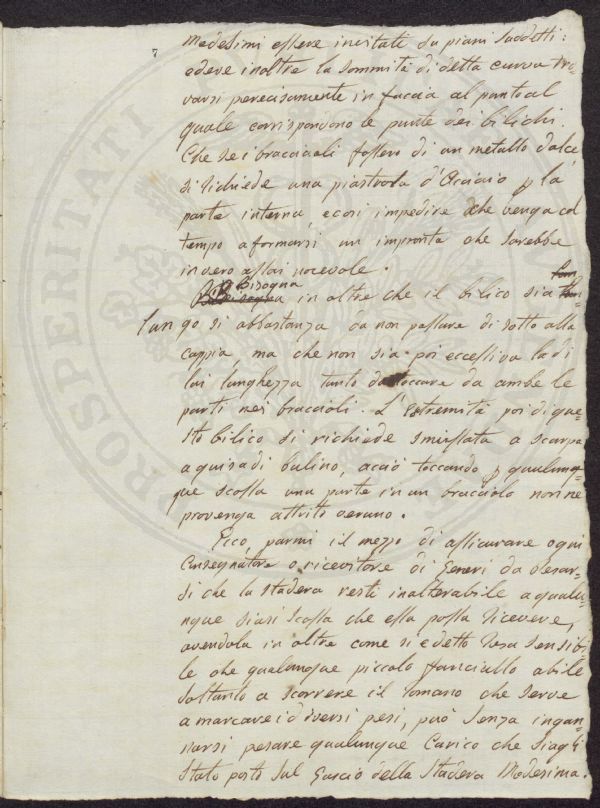 7
Medesimi essere incitate su piani suddetti:
e deve inoltre la sommità di detta curva tro-
varsi perecisamente in faccia al punto al
quale corrispondono le punte dei bilichi.
Che se i bracciali fossero di un metallo dolce,
si richiede una piastrola d'Acciaio p. la
parte interna, e così impedire che venga col
tempo a formarsi un impronta che sarebbe
in vero assai nocevole.
Bisogna
in oltre che il bilico sia
lungo si abbastanza da non passare di sotto alla
cappia ma che non sia poi eccessiva la di
lui lunghezza tanto da toccare da ambe le
parti nei braccioli. L'estremità poi di que=
sto bilico si richiede smussata a scarpa
a guisa di bulino, acciò toccando p. qualunq=
que scossa una parte in un bracciolo non ne
provenga attrito veruno.
Ecco, parmi il mezzo di assicurare ogni
Consegnatore o ricevitore di Generi da pesar-
si che la stadera resti inalterabile a qualu=
nque siasi scossa che essa possa ricevere,
avendola in oltre come si è detto resa sensibi-
le che qualunque piccolo fanciullo abile
soltanto a scorrere il romano che serve
a marcare i diversi pesi, può senza ingan-
narsi pesare qualunque Carico che siagli
stato posto sul Guscio della Stadera Medesima.
PROSPERITATI